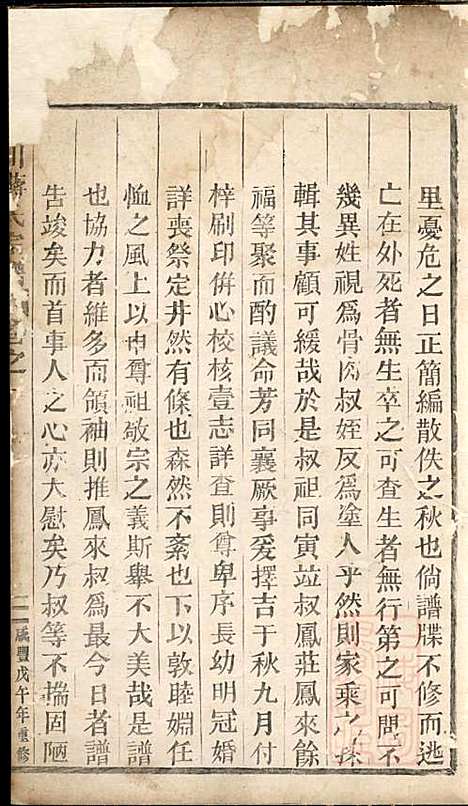 里憂危之日正簡編散佚之秋也倘譜牒不修而逃
亡在外死者無生卒之可查生者無行第之可問不
幾異姓視爲骨肉叔姪反爲塗人乎然則家乘之採
輯其事顧可緩哉於是叔祖同寅竝叔鳳莊鳳來餘
福等聚而酌議命芳同襄厥事爰擇吉于秋九月付
梓刷印併心校核壹志詳查則尊卑序長幼明冠婚
詳喪祭定井然有條也森然不紊也下以敦睦婣任
恤之風上以申尊祖敬宗之義斯舉不大美哉是譜
也協力者維多而領袖則推鳳來叔爲最今日者譜
告竣矣而首事人之心亦大慰矣乃叔等不揣固陋
川 氏宗譜 之
咸豐戊午年重修